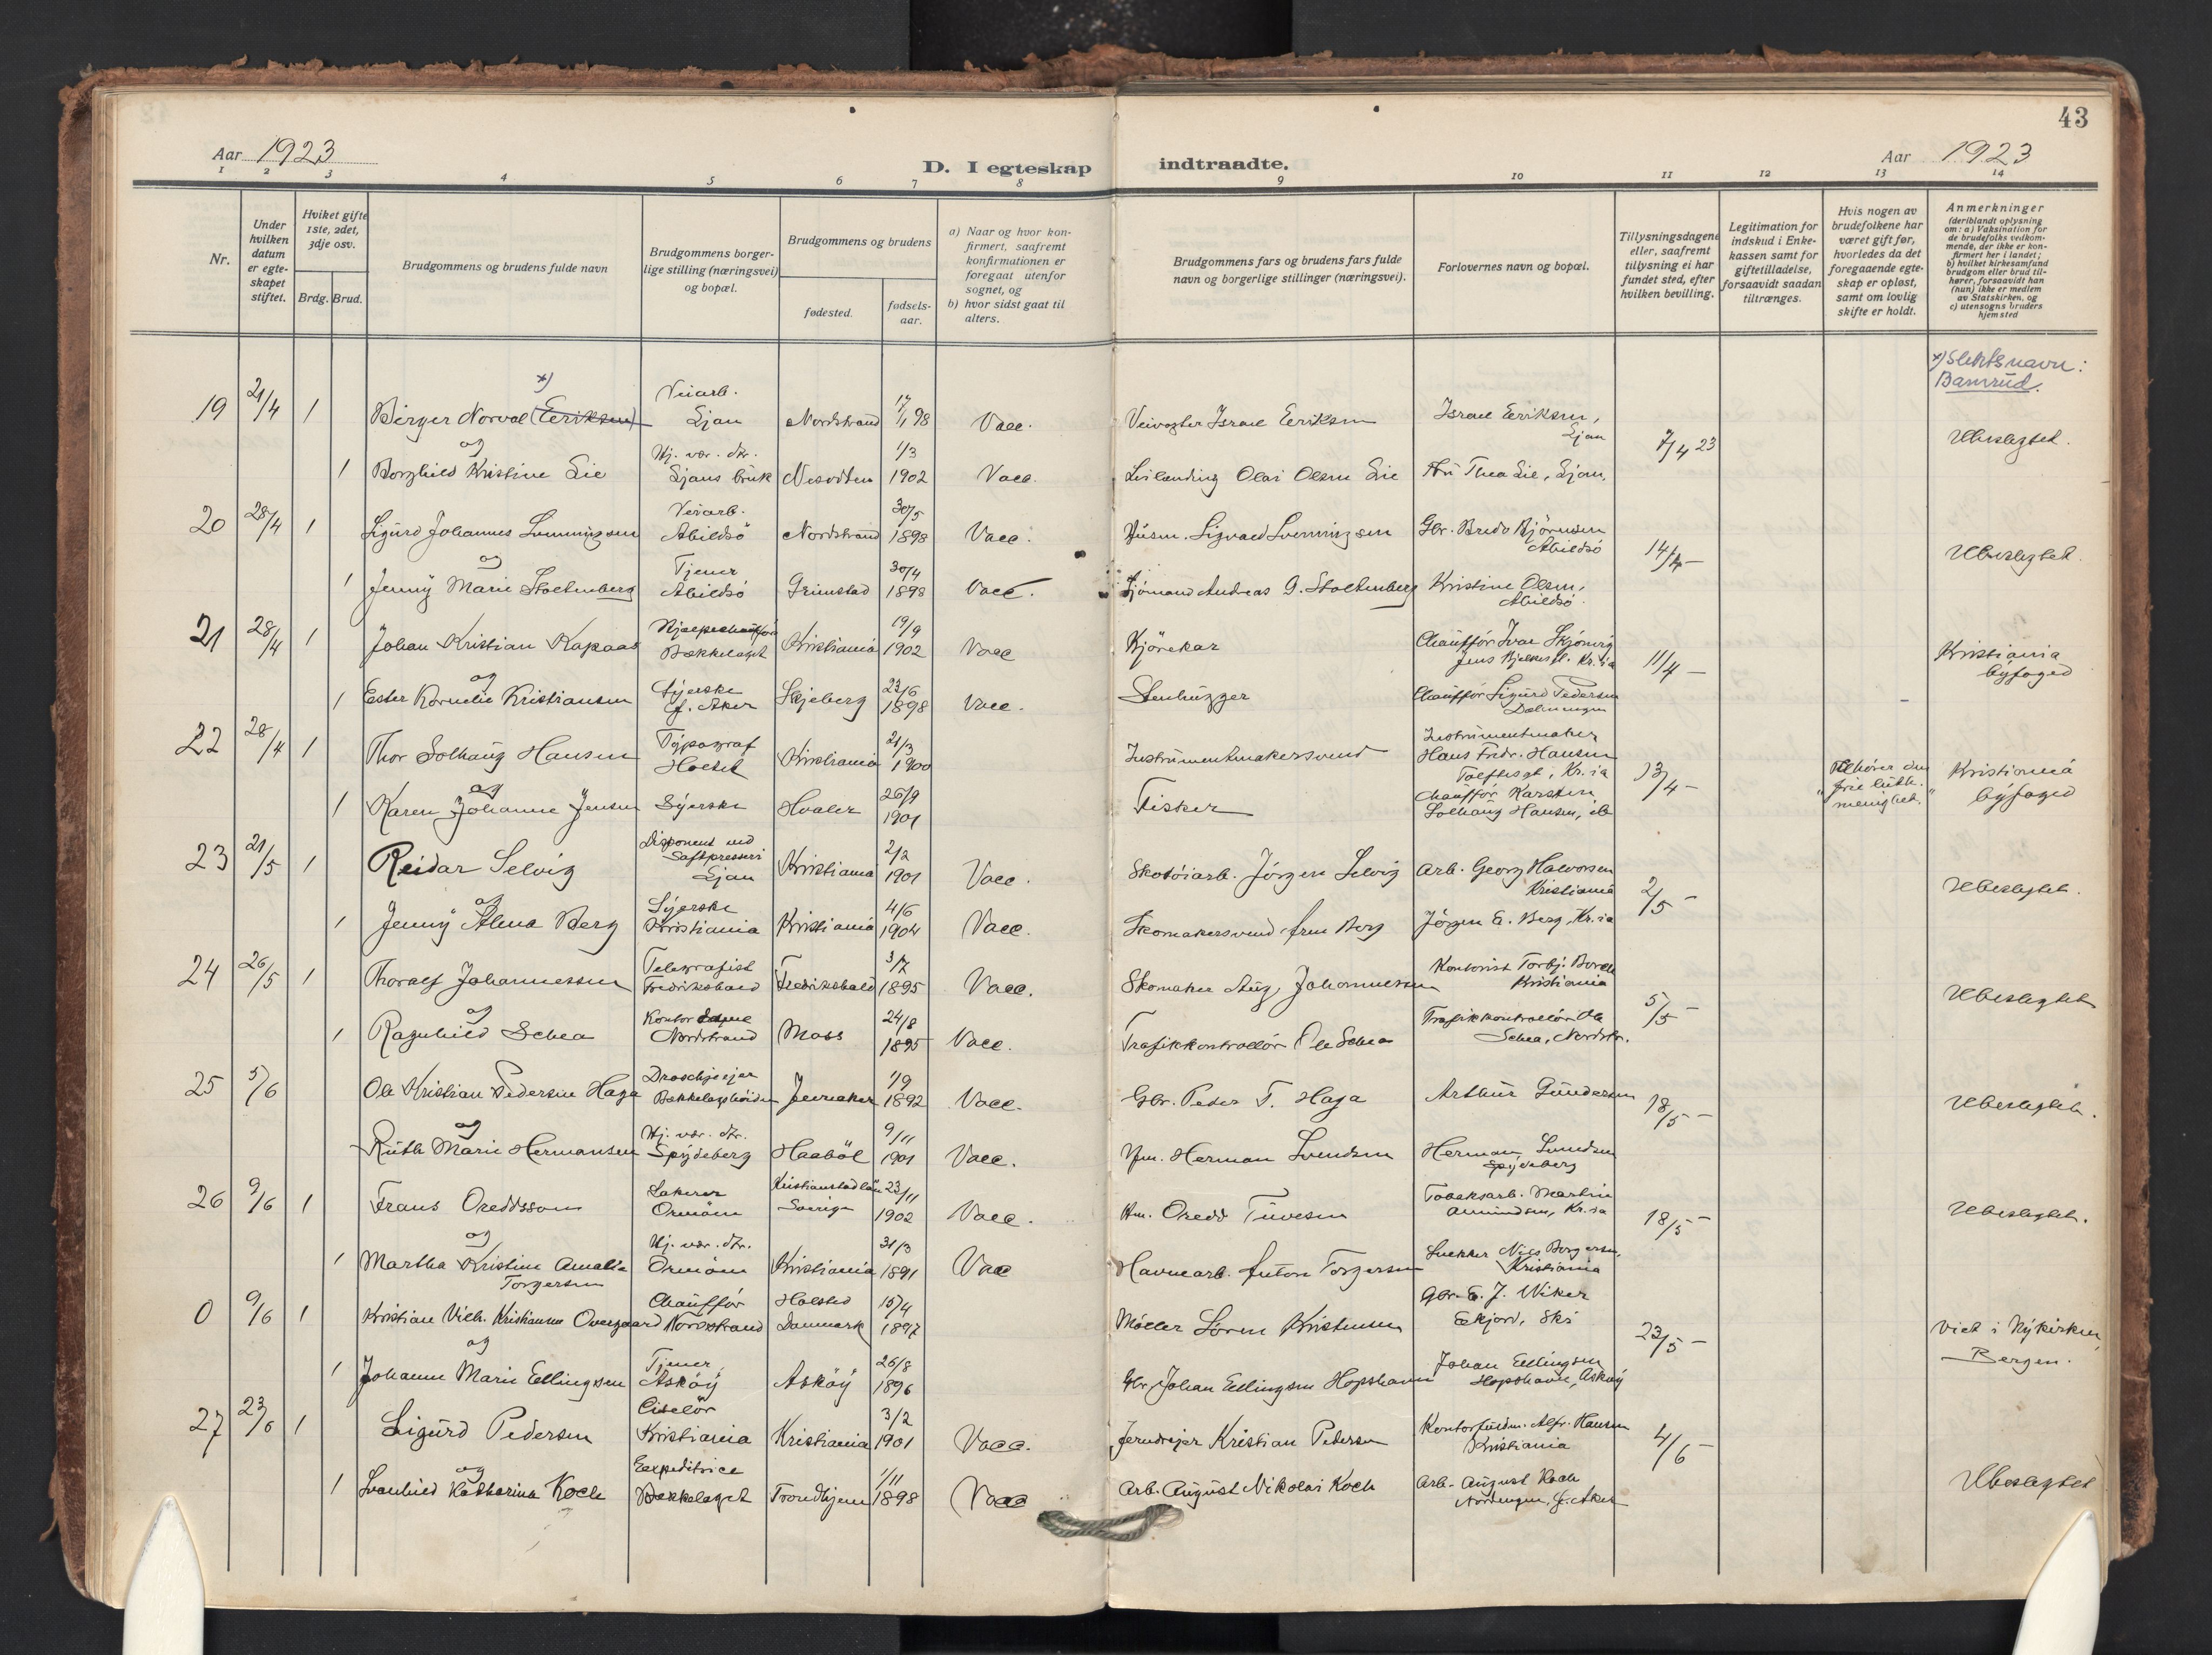 43
Aar 1923
D. I egteskap indtraadte.
Aar 1923
1 2 3 4 5 6 7 8 9 10 11 12 13 14
Nr.
Under hvilken datum er egteskapet stiftet.
Hviket gifte 1ste, 2det, 3dje osv.
Brdg. Brud.
Brudgommens og brudens fulde navn
Brudgommens borgerlige stilling (næringsvei) og bopæl.
Brudgommens og brudens
fødested.
fødselsaar.
a) Naar og hvor konfirmert, saafremt konfirmationen er foregaat utenfor sognet, og
b) hvor sidst gaat til alters.
Brudgommens fars og brudens fars fulde navn og borgerlige stillinger (næringsvei).
Forlovernes navn og bopæl.
Tillysningsdagene eller, saafremt tillysning ei har fundet sted, efter hvilken bevilling.
Legitimation for indskud i Enkekassen samt for giftetilladelse, forsaavidt saadan tiltrænges.
Hvis nogen av brudefolkene har været gift før, hvorledes da det foregaaende egteskap er opløst, samt om lovlig skifte er holdt.
Anmerkninger
(deriblandt oplysning om: a) Vaksination for de brudefolks vedkommende, der ikke er konfirmert her i landet; b) hvilket kirkesamfund brudgom eller brud tilhører, forsaavidt han (hun) ikke er medlem av Statskirken, og c) utensogns bruders hjemsted
x) Slektsnavn: Bamrud.
19 21/4 1 Birger Norval (Eeriksen) x) Veiarb. Ljan Nordstrand 17/1 98 Vacc. Veivogter Israel Eeriksen Israel Eeriksen, Ljan 7/4 23 Ubeslegtet.
og
1 Borghild Kristine Lie Hj. vær. dtr. Ljans bruk Nesodden 1/3 1902 Vacc. Leilænding Olai Olsen Lie Fru Thea Lie, Ljan.
20 28/4 1 Sigurd Johannes Svenningsen Veiarb. Abildsö Nordstrand 30/5 1898 Vacc. Husm. Sigvald Svenningsen Gbr. Bredo Björnsen Abildsö 14/4 – Ubeslegtet.
og
1 Jenny Marie Stoltenberg Tjener Abildsö Grimstad 30/4 1898 Vacc. Sjömand Andreas G. Stoltenberg Kristine Olsen, Abildsö.
21 28/4 1 Johan Kristian Kapaas Hjælpechauffør Bækkelaget Kristiania 19/9 1902 Vacc Kjörekar Chauffør Ivar Skjönvig Jens Bjelkes gt. Kr.ia 11/4 – Kristiania byfoged
og
1 Ester Kornelie Kristiansen Syerske Ø. Aker Skjeberg 23/6 1898 Vacc. Stenhugger Chauffør Sigurd Pedersen
22 28/4 1 Thor Solhaug Hansen Typograf Holtet Kristiania 21/3 1900 Instrumentmakersvend Instrumentmaker Hans Fredr. Hansen Toftesgt, Kr.ia 13/4 – Tilhører den "frie luth. menighet." Kristiania byfoged
og
1 Karen Johanne Jensen Syerske Hvaler 26/9 1901 Fisker Chauffør Karsten Solhaug Hansen, ib
23 21/5 1 Reidar Selvig Disponent ved Saftpresseri Ljan Kristiania 2/2 1901 Vacc. Skotöiarb. Jörgen Selvig Arb. Georg Halvorsen Kristiania 2/5 – Ubeslegtet.
og
1 Jenny Alma Berg Syerske Kristiania Kristiania 4/6 1904 Vacc. Skomakersvend Berg Jörgen E. Berg, Kr.ia
24 26/5 1 Thoralf Johannessen Telegrafist Fredrikshald Fredrikshald 3/7 1895 Vacc. Skomaker Aug. Johannessen Kontorist Torbj. Borch Kristiania 5/5 – Ubeslegtet
og
1 Ragnhild Schea Kontor Nordstrand Moss 24/8 1895 Vacc. Trafikkontrollör Ole Schea Trafikkontrollör Ole Schea, Nordstr.
25 5/6 Ole Kristian Pedersen Haga Droschjeejer Bækkelagshöiden Jevnaker 1/9 1892 Vacc. Gbr. Peder T. Haga Arthur Gundersen 18/5 – Ubeslegtet.
og
Ruth Marie Hermansen Hj. vær. dtr. Spydeberg Haaböl 9/11 1901 Vacc. Herman Svendsen Herman Svendsen Spydeberg
26 9/6 1 Frans Oreddsson Lakerer Ormöen Kristianstad län Sverige 23/11 1902 Vacc. Oredd Tuvesen Tobaksarb. Martin Amundsen, Kr.ia 18/5 – Ubeslegtet.
og
1 Martha Kristine Amalie Torgersen Hj. vær. dtr. Ormöen Kristiania 31/3 1891 Vacc Havnearb. Anton Torgersen Snekker Nils Borgersen, Kristiania
0 9/6 1 Kristian Vilh. Kristiansen Overgaard Chauffør Nordstrand Holsted Danmark 15/4 1897 Möller Sören Kristensen Gbr. E. J. Wiker Eekjord, Ski 23/5 – Viet i Nykirken, Bergen.
og
1 Johanne Marie Ellingsen Tjener, Asköy Asköy 26/8 1896 Gbr. Johan Ellingsen Hopshavn Johan Ellingsen Hopshavn, Asköy
27 23/6 1 Sigurd Pedersen Ciselör Kristiania Kristiania 3/2 1901 Vacc. Jerndreier Kristian Pedersen Kontorfuldm. Alfr. Hansen Kristiania 4/6 –
og
1 Svanhild Katharina Koch Expeditrice Bækkelaget Trondhjem 1/11 1898 Vacc Arb. August Nikolai Koch Arb. August Koch Ø. Aker Ubeslegtet